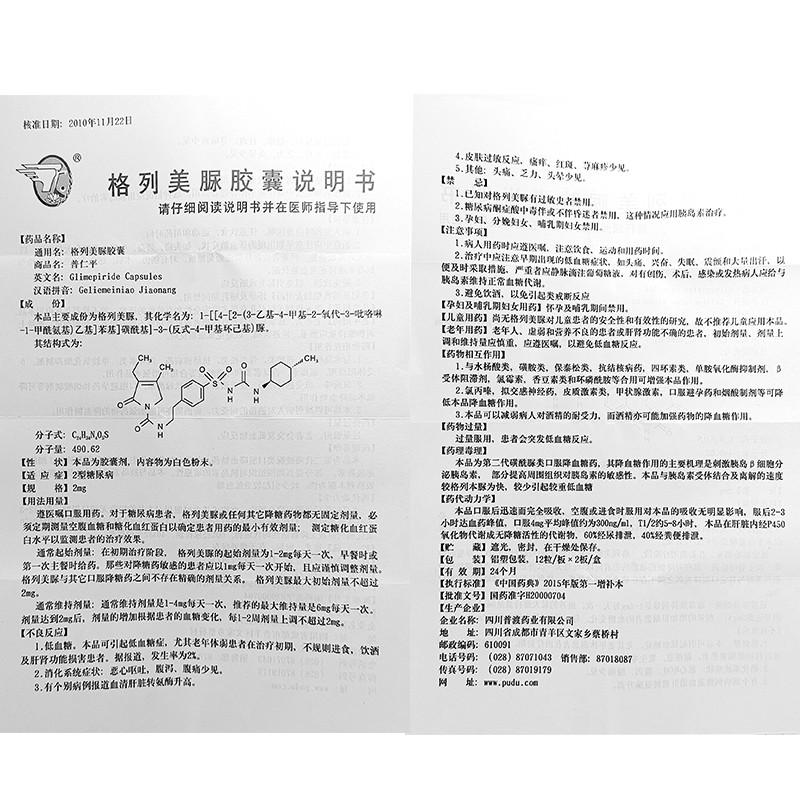 核准日期: 2010年11月22日
®
格列美脲胶囊说明书
请仔细阅读说明书并在医师指导下使用
【药品名称】
通用名: 格列美脲胶囊
商品名: 普仁平
英文名: Glimepiride Capsules
汉语拼音: Geliemeiniao Jiaonang
【成 份】
本品主要成份为格列美脲。其化学名为: 1-[[4-[2-(3-乙基-4-甲基-2-氧代-3-吡咯啉
-1-甲酰氨基)乙基]苯基]磺酰基]-3-(反式-4-甲基环己基)脲。
其结构式为:
CH₃
CH₃
CH₃
O
N
O
NH
O
S
O
N
H
O
N
H
分子式: C₂₄H₃₄N₄O₅S
分子量: 490.62
【性 状】本品为胶囊剂, 内容物为白色粉末。
【适 应 症】2型糖尿病
【规 格】2mg
【用法用量】
遵医嘱口服用药。对于糖尿病患者, 格列美脲或任何其它降糖药物都无固定剂量, 必
须定期测量空腹血糖和糖化血红蛋白以确定患者用药的最小有效剂量; 测定糖化血红蛋
白水平以监测患者的治疗效果。
通常起始剂量: 在初期治疗阶段, 格列美脲的起始剂量为1-2mg每天一次, 早餐时或
第一次主餐时给药。那些对降糖药敏感的患者应以1mg每天一次开始, 且应谨慎调整剂量。
格列美脲与其它口服降糖药之间不存在精确的剂量关系。 格列美脲最大初始剂量不超过
2mg。
通常维持剂量: 通常维持剂量是1-4mg每天一次, 推荐的最大维持量是6mg每天一次。
剂量达到2mg后, 剂量的增加根据患者的血糖变化, 每1-2周剂量上调不超过2mg。
【不良反应】
1.低血糖。本品可引起低血糖症, 尤其老年体弱患者在治疗初期, 不规则进食, 饮酒
及肝肾功能损害患者。据报道, 发生率为2%。
2.消化系统症状: 恶心呕吐, 腹泻、腹痛少见。
3.有个别病例报道血清肝脏转氨酶升高。
4.皮肤过敏反应、瘙痒、红斑、荨麻疹少见。
5.其他: 头痛、乏力、头晕少见。
【禁 忌】
1.已知对格列美脲有过敏史者禁用。
2.糖尿病酮症酸中毒伴或不伴昏迷者禁用, 这种情况应用胰岛素治疗。
3.孕妇、分娩妇女、哺乳期妇女禁用。
【注意事项】
1.病人用药时应遵医嘱, 注意饮食、运动和用药时间。
2.治疗中应注意早期出现的低血糖症状, 如头痛、兴奋、失眠、震颤和大量出汗, 以
便及时采取措施, 严重者应静脉滴注葡萄糖液。对有创伤、术后、感染或发热病人应给与
胰岛素维持正常血糖代谢。
3.避免饮酒, 以免引起类戒断反应
【孕妇及哺乳期妇女用药】怀孕及哺乳期间禁用。
【儿童用药】尚无格列美脲对儿童患者的安全性和有效性的研究, 故不推荐儿童应用本品。
【老年用药】老年人、虚弱和营养不良的患者或肝肾功能不确的患者, 初始剂量、剂量上
调和维持量应慎重, 应遵医嘱, 以避免低血糖反应。
【药物相互作用】
1.与水杨酸类、磺胺类、保泰松类、抗结核病药、四环素类、单胺氧化酶抑制剂、β
受体阻滞剂、氯霉素、香豆素类和环磷酰胺等合用可增强本品作用。
2.氯丙嗪, 拟交感神经药, 皮质激素类, 甲状腺激素, 口服避孕药和烟酸制剂等可降
低本品降血糖作用。
3.本品可以减弱病人对酒精的耐受力, 而酒精亦可能加强药物的降血糖作用。
【药物过量】
过量服用, 患者会突发低血糖反应。
【药理毒理】
本品为第二代磺酰脲类口服降血糖药, 其降血糖作用的主要机理是刺激胰岛β细胞分
泌胰岛素, 部分提高周围组织对胰岛素的敏感性。本品与胰岛素受体结合及离解的速度
较格列本脲为快, 较少引起较重低血糖
【药代动力学】
本品口服后迅速而完全吸收, 空腹或进食时服用对本品的吸收无明显影响, 服后2-3
小时达血药峰值, 口服4mg平均峰值约为300ng/ml, T1/2约5-8小时, 本品在肝脏内经P450
氧化物代谢成无降糖活性的代谢物, 60%经尿排泄, 40%经粪便排泄。
【贮 藏】遮光, 密封, 在干燥处保存。
【包 装】铝塑包装, 12粒/板×2板/盒
【有 效 期】24个月
【执行标准】《中国药典》2015年版第一增补本
【批准文号】国药准字H20000704
【生产企业】
企业名称: 四川普渡药业有限公司
地 址: 四川省成都市青羊区文家乡蔡桥村
邮政编码: 610091
电话号码: (028) 87071043 销售部: 87018087
传真号码: (028) 87019179
网 址: www.pudu.com